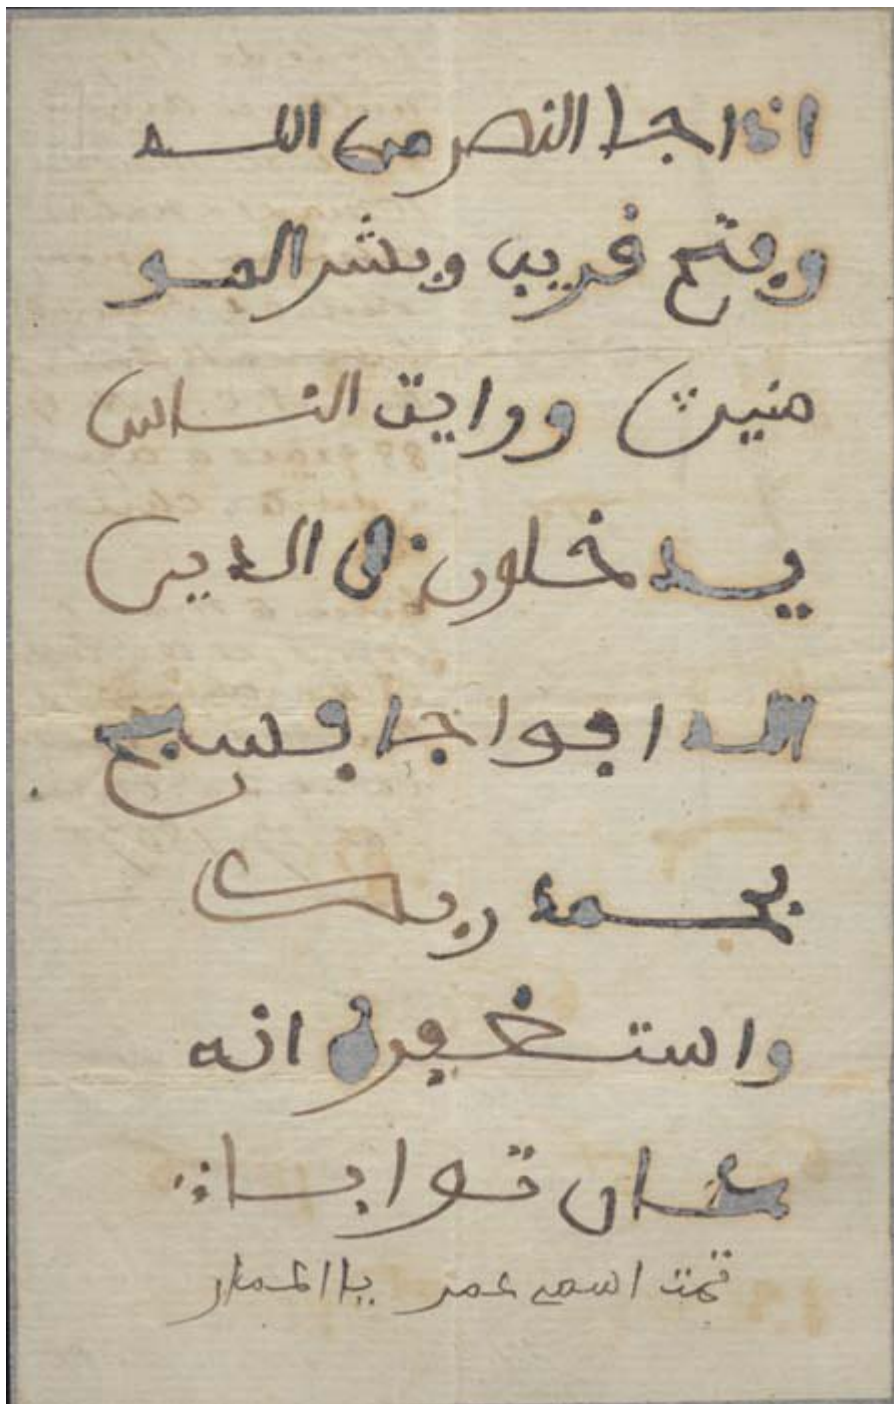 اذا جا النصر من الله
وفتح قريب وبشر المو
منين ورايت الناس
يدخلون في الدين
الله افواجا فسبح
بحمد ربك
واستخفره انه
كان توابا
تمت اسمي عمر